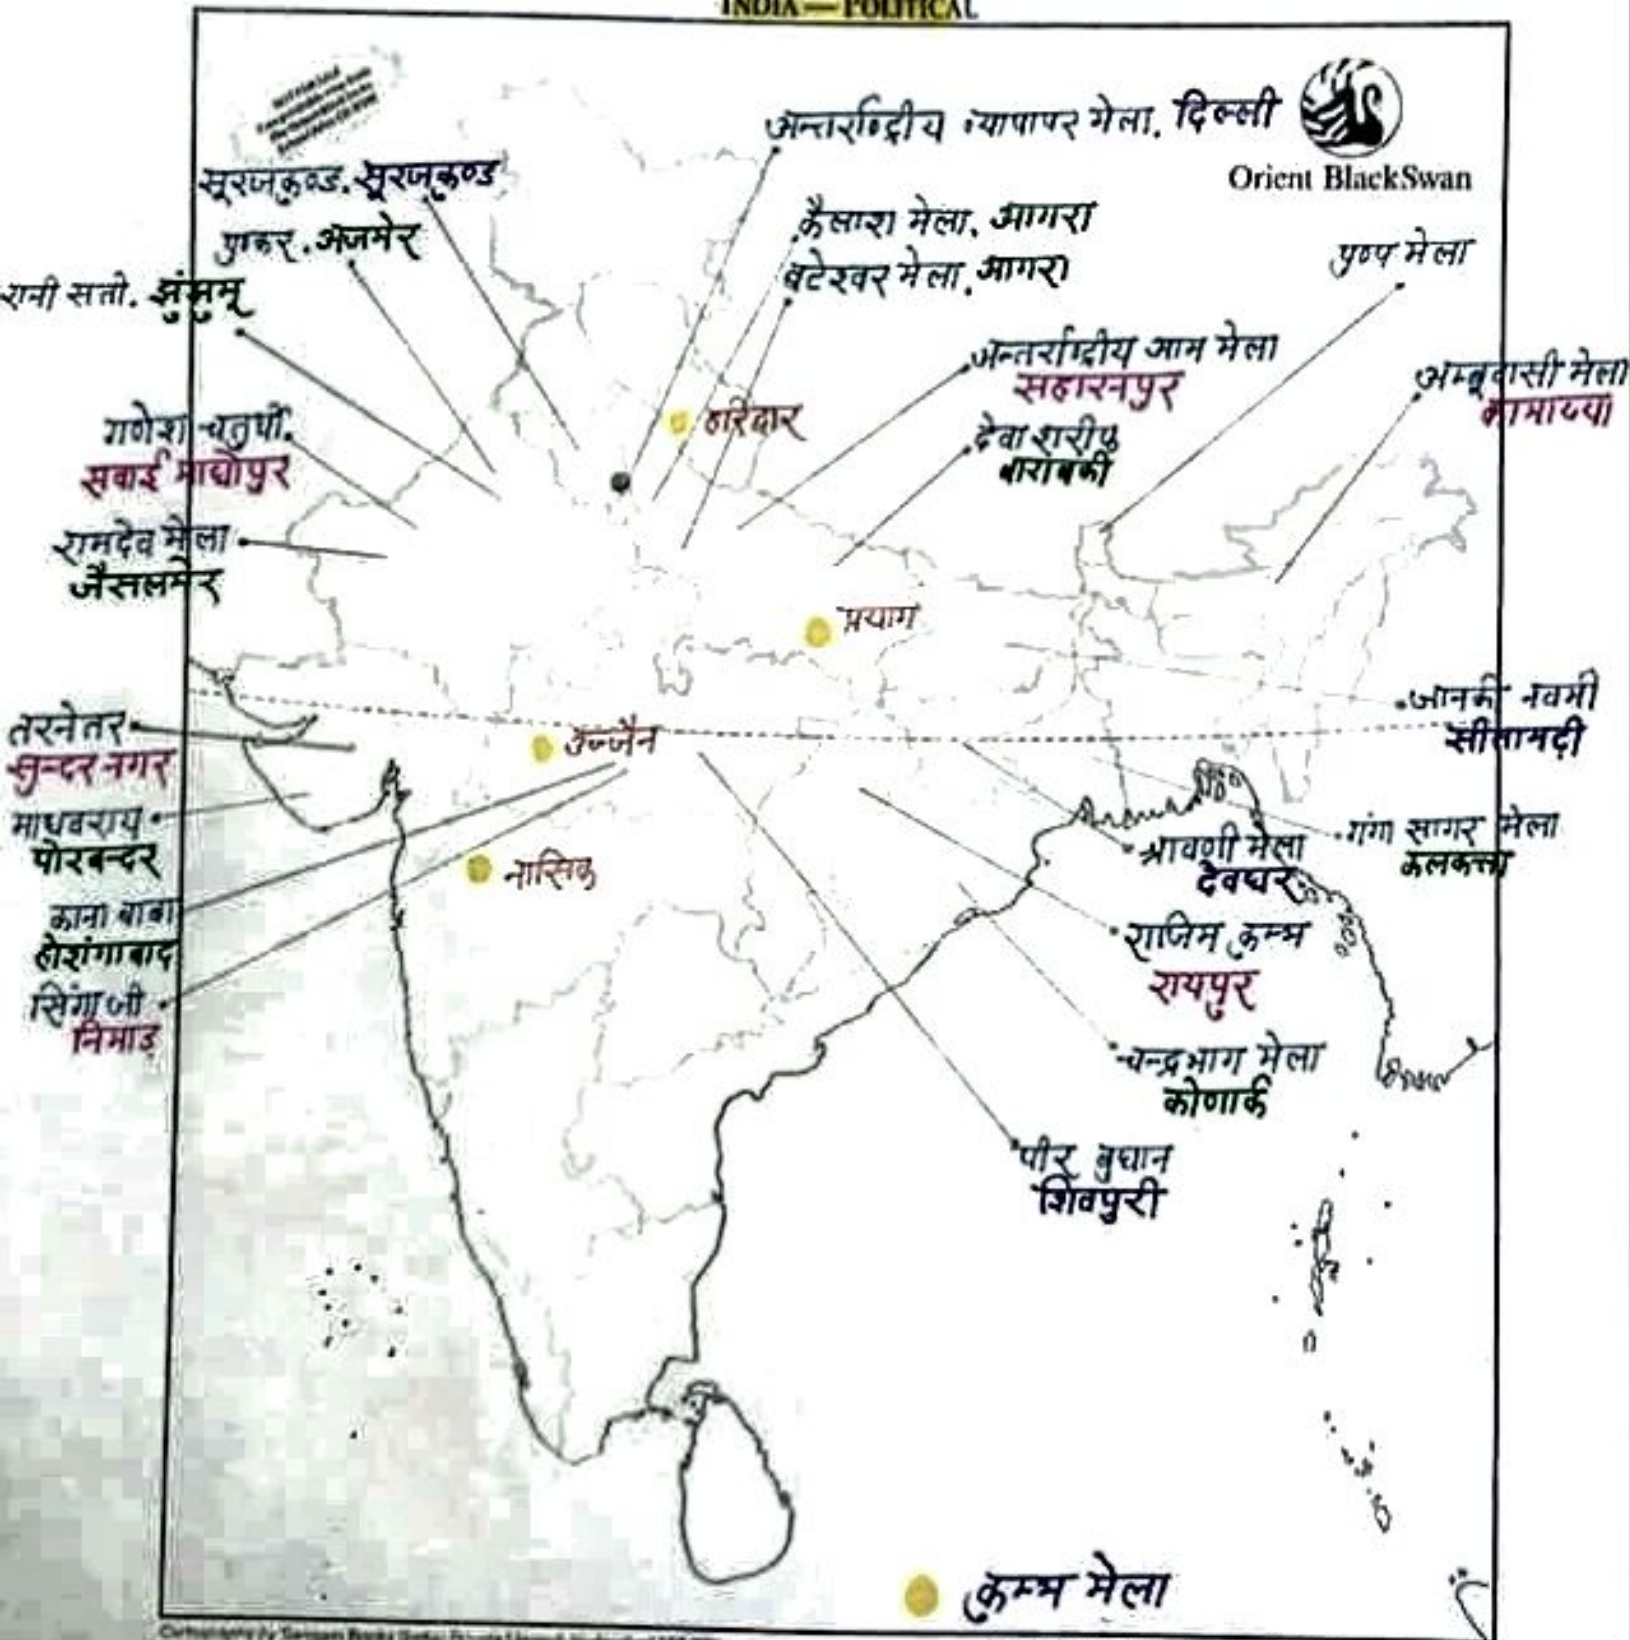 INDIA — POLITICAL
Orient BlackSwan
अन्तर्राष्ट्रीय व्यापापर मेला, दिल्ली
सूरजकुण्ड, सूरजकुण्ड
पुष्कर, अजमेर
रानी सती, झुंझुमू
कैलाश मेला, आगरा
वटेश्वर मेला, आगरा
पुष्प मेला
अन्तर्राष्ट्रीय आम मेला
सहारनपुर
अम्बूवासी मेला
कामाख्या
हरिद्वार
देवा शरीफ
बाराबकी
गणेश चतुर्थी,
सवाई माधोपुर
रामदेव मेला
जैसलमेर
प्रयाग
जानकी नवमी
सीतामढ़ी
तरनेतर
सुन्दर नगर
उज्जैन
माधवराय
पोरबन्दर
गंगा सागर मेला
कलकत्ता
श्रावणी मेला
देवघर
नासिक
काना बाबा
होशंगाबाद
राजिम कुम्भ
रायपुर
सिंगाजी
निमाड़
चन्द्रभाग मेला
कोणार्क
पीर बुधान
शिवपुरी
कुम्भ मेला